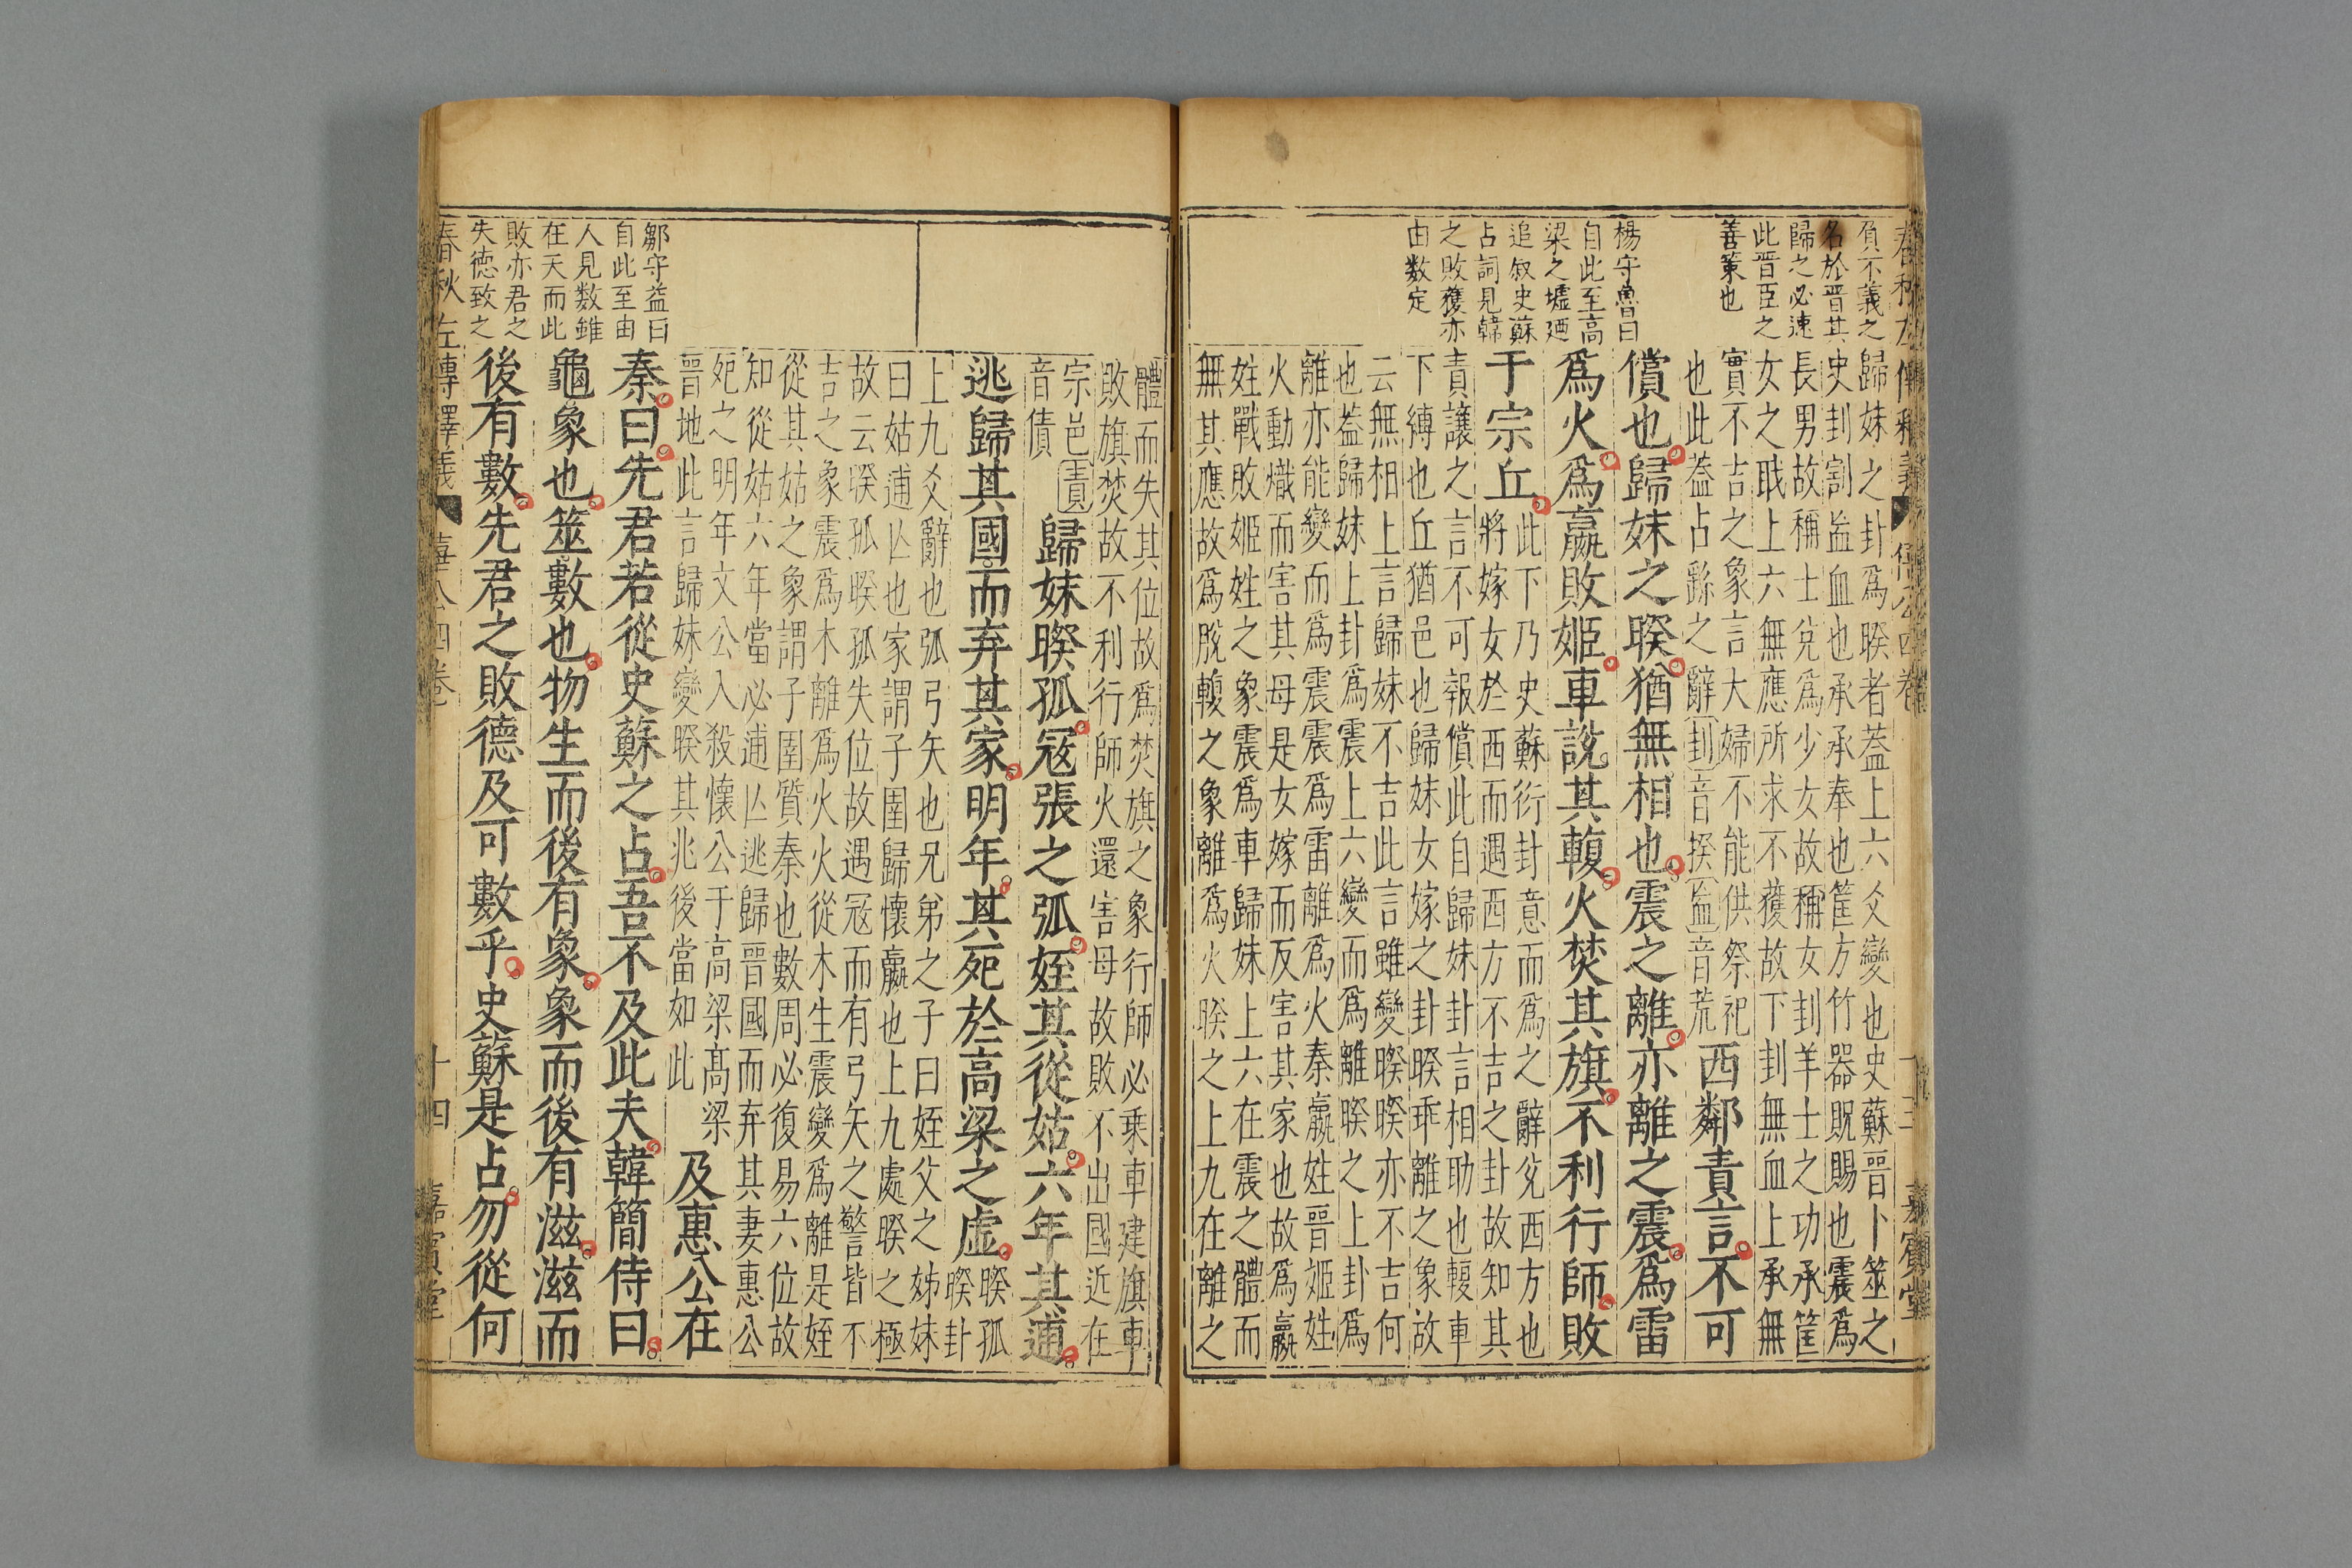 負不義之
名於晋其
歸之必速
此晋臣之
善策也
楊守魯曰
自此至高
梁之墟廼
追叙史蘇
占詞見韓
之敗獲亦
由数定
歸妹之卦爲睽者葢上六爻變也史蘇晉卜筮之
史刲割衁血也承承奉也筐方竹器貺賜也震爲
長男故稱士兌爲少女故稱女刲羊士之功承筐
女之職上六無應所求不獲故下刲無血上承無
實不吉之象言大婦不能供祭祀
也此葢占繇之辭刲音揆衁音荒
西鄰責言不可
償也歸妹之睽猶無相也震之離亦離之震爲雷
爲火爲嬴敗姬車說其輹火焚其旗不利行師敗
于宗丘
此下乃史蘇衍封意而爲之辭兌西方也
將嫁女於西而遇西方不吉之卦故知其
責讓之言不可報償此自歸妹卦言相助也輹車
下縛也丘猶邑也歸妹女嫁之卦睽乖離之象故
云無相上言歸妹不吉此言雖變睽睽亦不吉何
也葢歸妹上卦爲震震上六變而爲離睽之上卦爲
離亦能變而爲震震爲雷離爲火秦嬴姓晉姬姓
火動熾而害其母是女嫁而反害其家也故爲嬴
姓戰敗姬姓之象震爲車歸妹上六在震之體而
無其應故爲脫輹之象離爲火睽之上九在離之
春秋左傳釋義 僖公四卷 十三 嘉賓堂
體而失其位故爲焚旗之象行師必乘車建旗車
敗旗焚故不利行師火還害母故敗不出國近在
宗邑責
音債
歸妹睽孤冦張之弧姪其從姑六年其逋
逃歸其國而弃其家明年其死於高梁之虛
睽孤
睽卦
上九爻辭也弧弓矢也兄弟之子曰姪父之姊妹
曰姑逋亾也家謂子圉歸懷嬴也上九處睽之極
故云睽孤睽孤失位故遇冦而有弓矢之警皆不
吉之象震爲木離爲火火從木生震變爲離是姪
從其姑之象謂子圉質秦也數周必復易六位故
知從姑六年當必逋亾逃歸晉國而弃其妻惠公
死之明年文公入殺懷公于高梁髙梁
晉地此言歸妹變睽其兆後當如此
及惠公在
秦曰先君若從史蘇之占吾不及此夫韓簡侍曰
龜象也筮數也物生而後有象象而後有滋滋而
後有數先君之敗德及可數乎史蘇是占勿從何
鄒守益曰
自此至由
人見数雖
在天而此
敗亦君之
失德致之
春秋左傳釋義 僖公四卷 十四 嘉賓堂